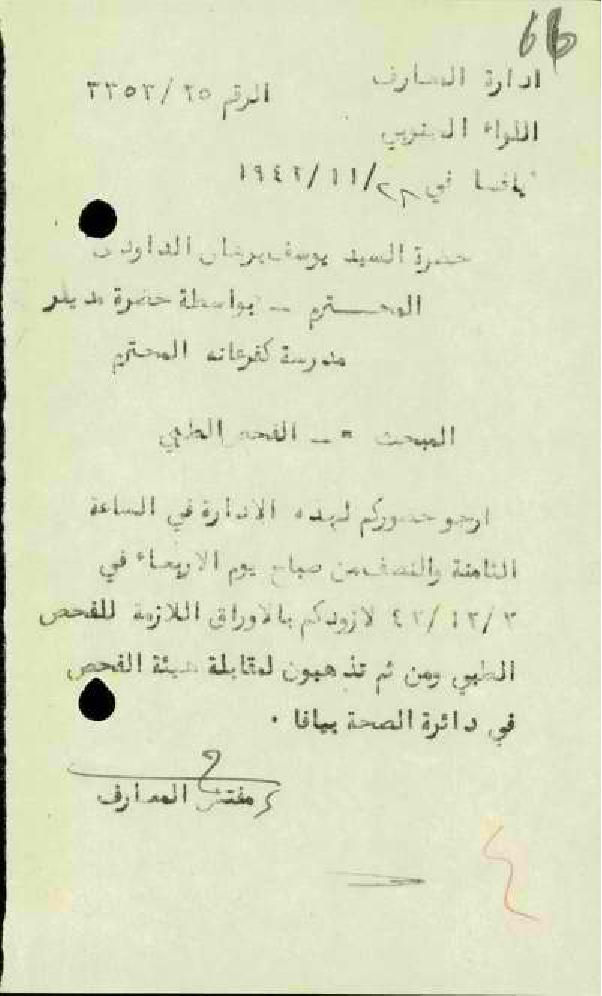 66
ادارة المعارف
الرقم ٢٥/ ٣٣٥٣
اللواء الجنوبي
يافا في ٢٨/ ١١/ ١٩٤٢
حضرة السيد يوسف الداودي
المحـــترم ــ بواسطة حضرة مدير
مدرسة كفرعانه المحترم
المبحث ــ الفحص الطبي
ارجو حضوركم لهذه الادارة في الساعة
الثامنة والنصف من صباح يوم الاربعاء في
٤٢/١٢/ لازودكم بالاوراق اللازمة للفحص
الطبي ومن ثم تذهبون لمقابلة هيئة الفحص
في دائرة الصحة بيافا .
مفتش المعارف